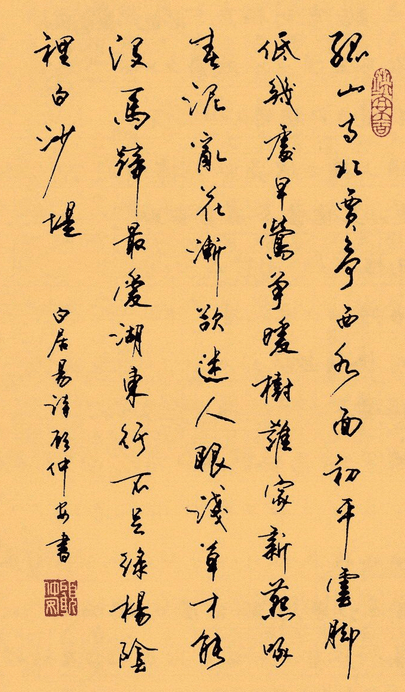 孤山寺北賈亭西水面初平雲脚
低幾處早鶯爭暖樹誰家新燕啄
春泥亂花漸欲迷人眼淺草才能
沒馬蹄最愛湖東行不足綠楊陰
裡白沙堤
白居易詩顧仲安書